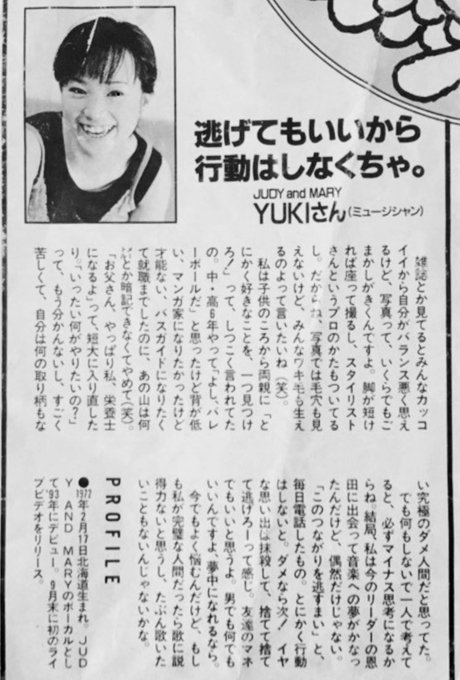 逃げてもいいから
行動はしなくちゃ。
JUDY and MARY
YUKIさん(ミュージシャン)
雑誌とか見てるとみんなカッコ
イイから自分がバランス悪く思え
るけど、写真って、いくらでもご
まかしがきくんですよ。脚が短け
れば座って撮るし、スタイリスト
さんというプロのかたもついてる
し。だからね、写真では毛穴も見
えないけど、みんなワキ毛も生え
るのよって言いたいね(笑)。
私は子供のころから両親に「と
にかく好きなことを、一つ見つけ
ろ!」って、しつこく言われてた
の。中・高6年やって〝よし、バレ
ーボールだ〟と思ったけど背が低
い、マンガ家になりたかったけど
才能ない、バスガイドになりたく
て就職までしたのに、あの山は何
とか暗記できなくてやめて(笑)。
「お父さん、やっぱり私、栄養士
になるよ」って、短大に入り直した
り。「いったい何がやりたいの?」
って、もう分かんないし、すごく
苦しくて、自分は何の取り柄もな
い究極のダメ人間だと思ってた。
でも何もしないで一人で考えて
ると、必ずマイナス思考になるか
らね。結局、私は今のリーダーの恩
田に出会って音楽への夢がかなっ
たんだけど、偶然だけじゃない。
「このつながりを逃すまい」と、
毎日電話したもの。とにかく行動
はしないと。ダメなら次! イヤ
な思い出は抹殺して、捨てて捨て
て逃げろーって感じ。友達のマネ
でもいいと思うよ。男でも何でも
いいんですよ、夢中になれるなら。
今でもよく悩むんだけど、もし
も私が完璧な人間だったら歌に説
得力ないと思うし、たぶん歌いた
いこともないんじゃないかな。
PROFILE
●1972年2月17日北海道生まれ。JUD
Y AND MARYのボーカルとし
て'93年にデビュー。9月末に初のライ
ブビデオをリリース。